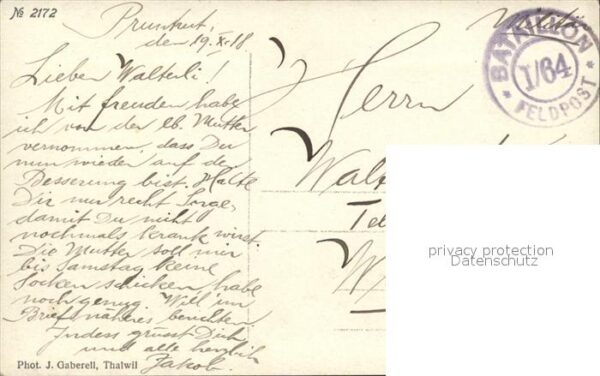 № 2172
Pruntrut,
den 19. X. 18
Militär
BATAILLON
I/64
* FELDPOST *
Lieben Walterli!
Mit freuden habe
ich von der lb. Mutter
vernommen, dass Du
nun wieder auf der
Besserung bist. Halte
Dir nur recht Sorge,
damit Du nicht
nochmals krank wirst.
Die Mutter soll mir
bis Samstag keine
Socken schicken, habe
noch genug. Will im
Brief näheres berichten
Indess grüsst Dich
und alle herzlich
Jakob.
Herrn
Walt
Tel
W
privacy protection
Datenschutz
Phot. J. Gaberell, Thalwil